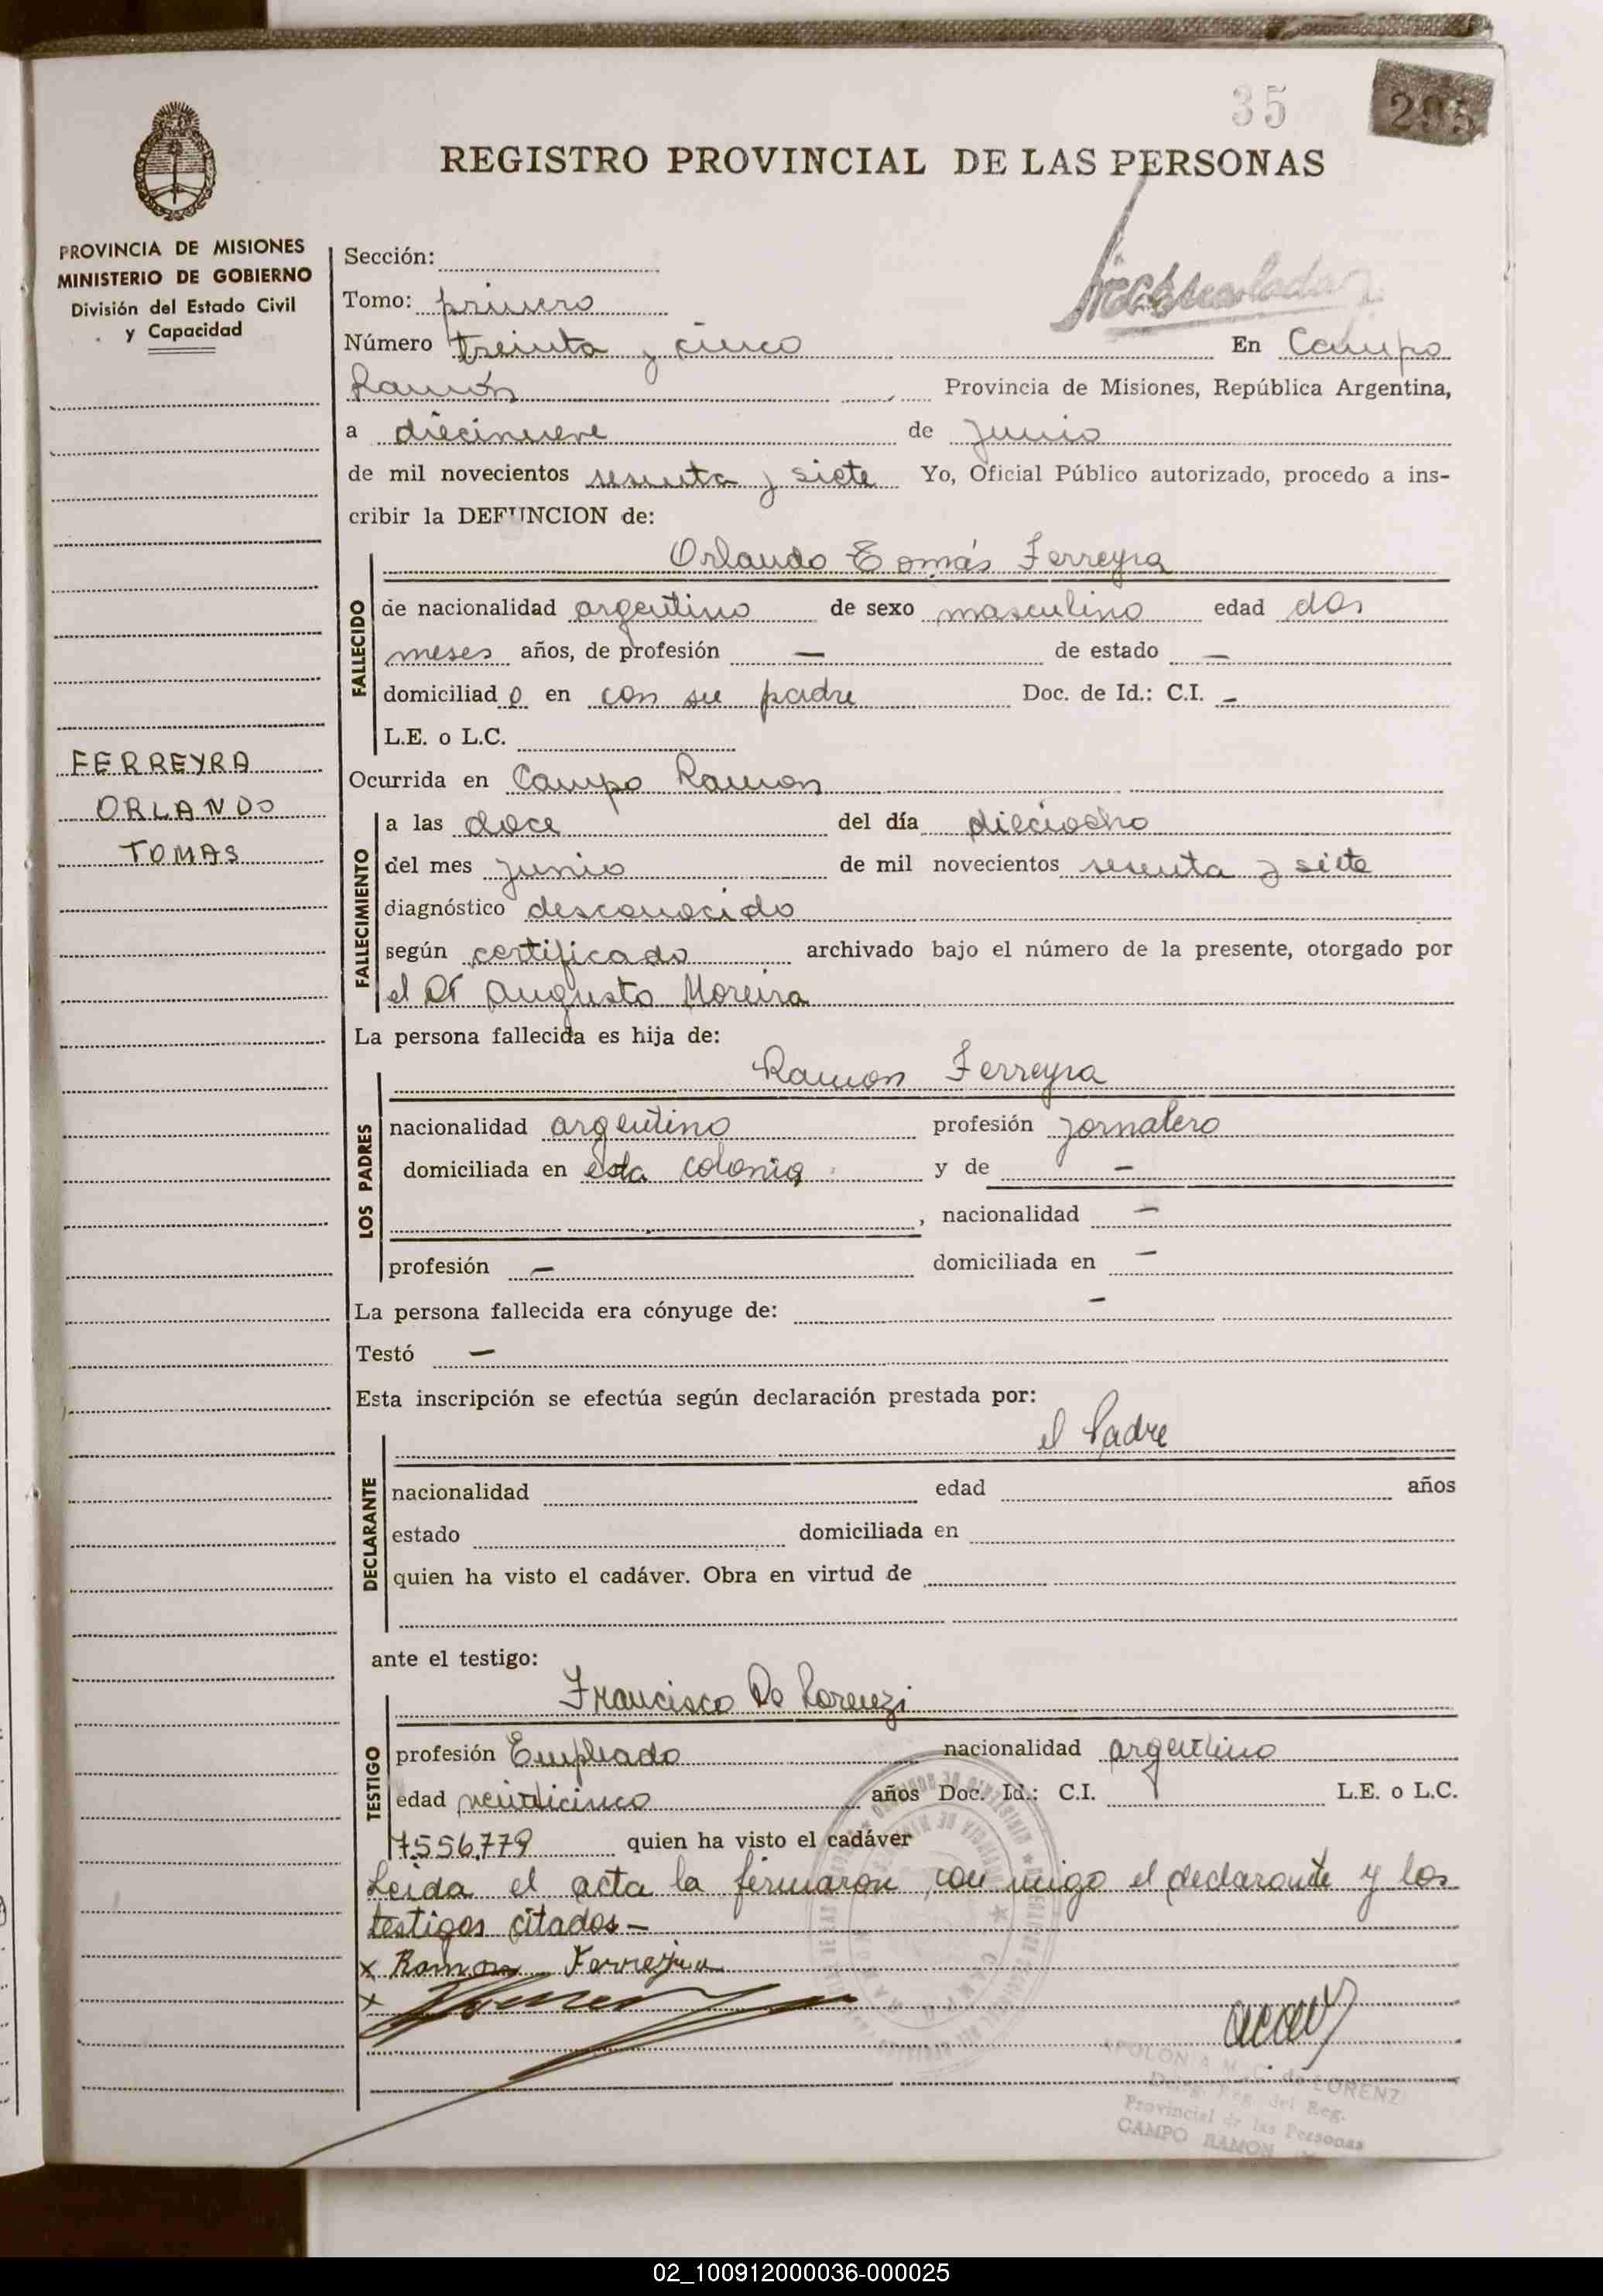 35
295
REGISTRO PROVINCIAL DE LAS PERSONAS
PROVINCIA DE MISIONES
MINISTERIO DE GOBIERNO
División del Estado Civil
y Capacidad
FERREYRA
ORLANDO
TOMAS
Sección:
Tomo: primero
Número treinta y cinco En Campo
Ramón Provincia de Misiones, República Argentina,
a diecinueve de Junio
de mil novecientos sesenta y siete Yo, Oficial Público autorizado, procedo a ins-
cribir la DEFUNCION de:
FALLECIDO
Orlando Tomás Ferreyra
de nacionalidad argentino de sexo masculino edad dos
meses años, de profesión — de estado —
domiciliad o en con su padre Doc. de Id.: C.I. -
L.E. o L.C.
Ocurrida en Campo Ramon
FALLECIMIENTO
a las doce del día dieciocho
del mes Junio de mil novecientos sesenta y siete
diagnóstico desconocido
según certificado archivado bajo el número de la presente, otorgado por
el Dr Augusto Moreira
La persona fallecida es hija de:
LOS PADRES
Ramon Ferreyra
nacionalidad argentino profesión Jornalero
domiciliada en esta colonia y de —
, nacionalidad —
profesión — domiciliada en —
La persona fallecida era cónyuge de: —
Testó —
Esta inscripción se efectúa según declaración prestada por:
DECLARANTE
el Padre
nacionalidad edad años
estado domiciliada en
quien ha visto el cadáver. Obra en virtud de
ante el testigo:
TESTIGO
Francisco De Lorenzi
profesión Empleado nacionalidad argentino
edad veinticinco años Doc. Id.: C.I. L.E. o L.C.
7.556.779 quien ha visto el cadáver
Leida el acta la firmaron con migo el declarante y los
testigos citados—
x Ramon Ferreyra
x
APOLONIA M. C. de LORENZI
Deleg. Reg. del Reg.
Provincial de las Personas
CAMPO RAMON
02_100912000036-000025